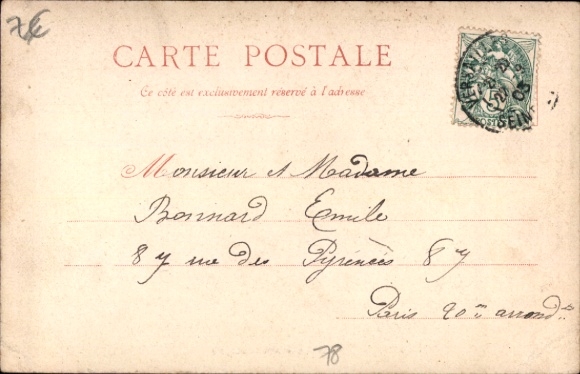 7€
CARTE POSTALE
Ce côté est exclusivement réservé à l'adresse
Monsieur et Madame
Bonnard Emile
87 rue des Pyrénées 87
Paris 20me arrondt
78